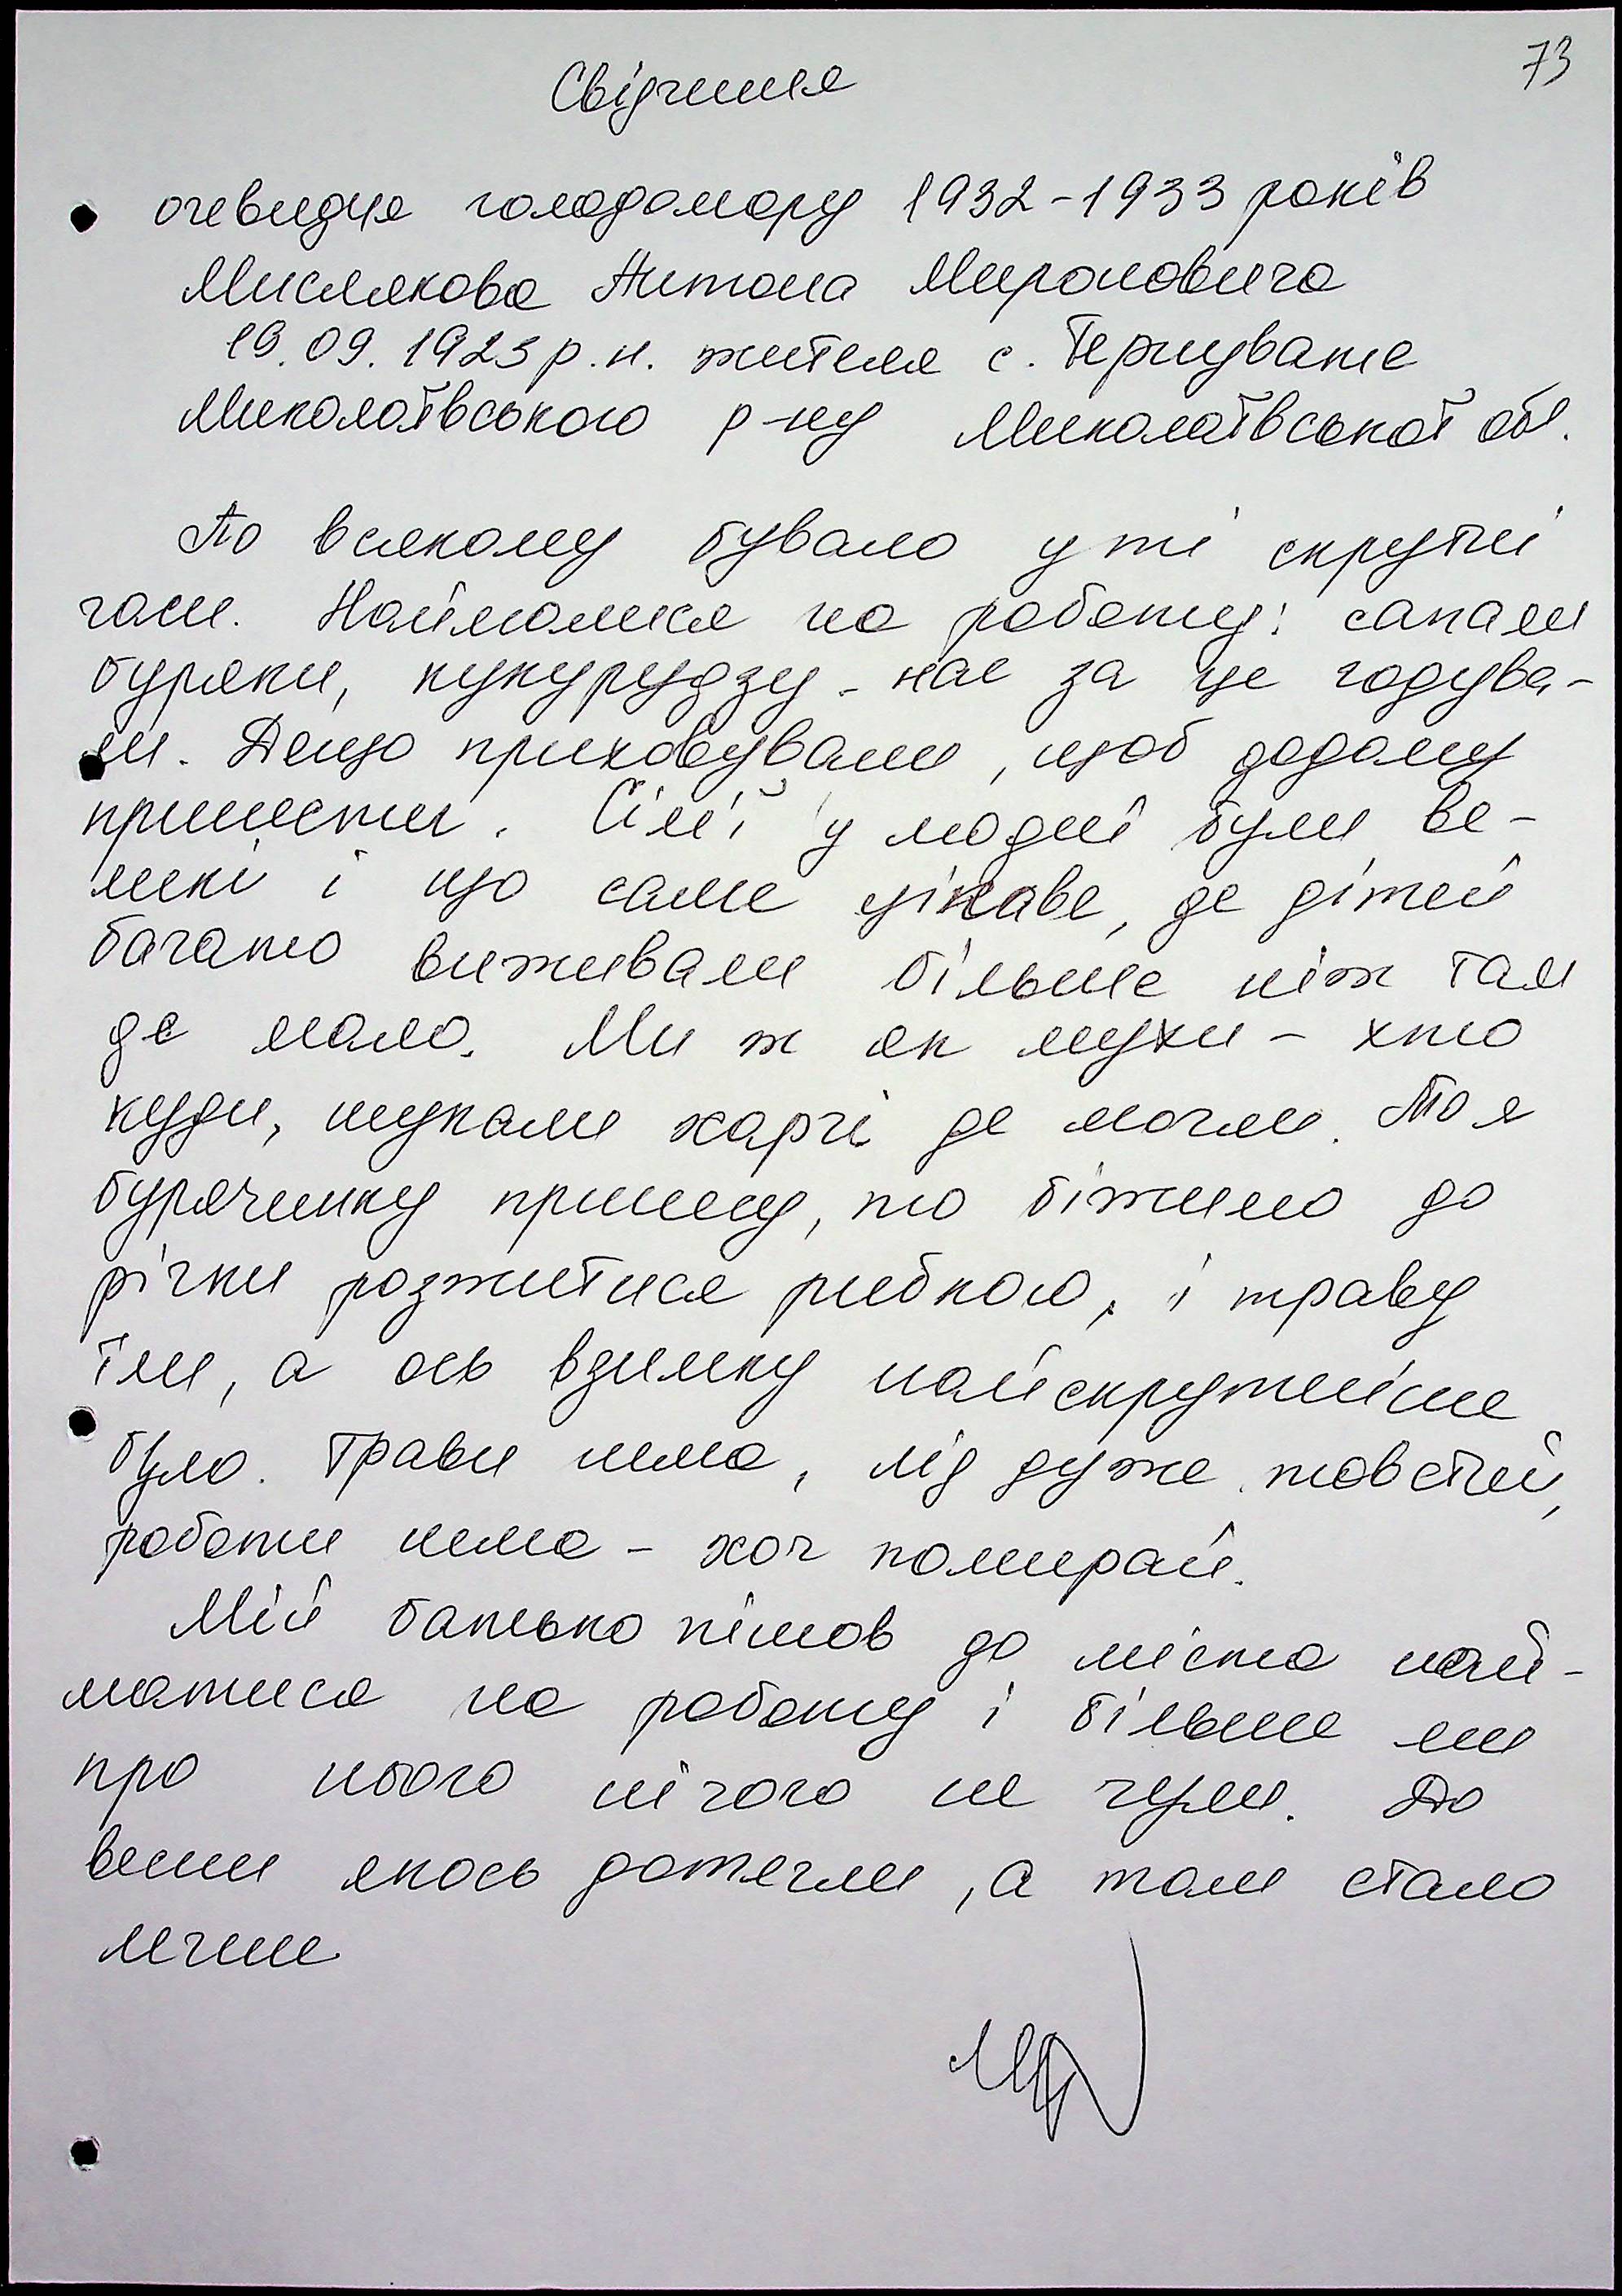 73
Свідчення
очевидця голодомору 1932-1933 років
Мислякова Антона Мироновича
19.09.1923 р.н. жителя с. Тернувате
Миколаївського р-ну Миколаївської обл.
По всякому бувало у ті скрутні
часи. Наймалися на роботу: сапали
буряки, кукурудзу - нас за це годува-
ли. Дещо приховували, щоб додому
принести. Сім'ї у людей були ве-
ликі і що саме цікаве, де дітей
багато виживали більше ніж там
де мало. Ми ж як мухи - хто
куди, шукали харчі де могли. То я
бурячинку принесу, то біжимо до
річки розжитися рибкою, і траву
їли, а ось взимку найскрутніше
було. Трави нема, лід дуже товстий,
роботи нема - хоч помирай.
Мій батько пішов до міста най-
матися на роботу і більше ми
про нього нічого не чули. До
весни якось дотягли, а там стало
легше